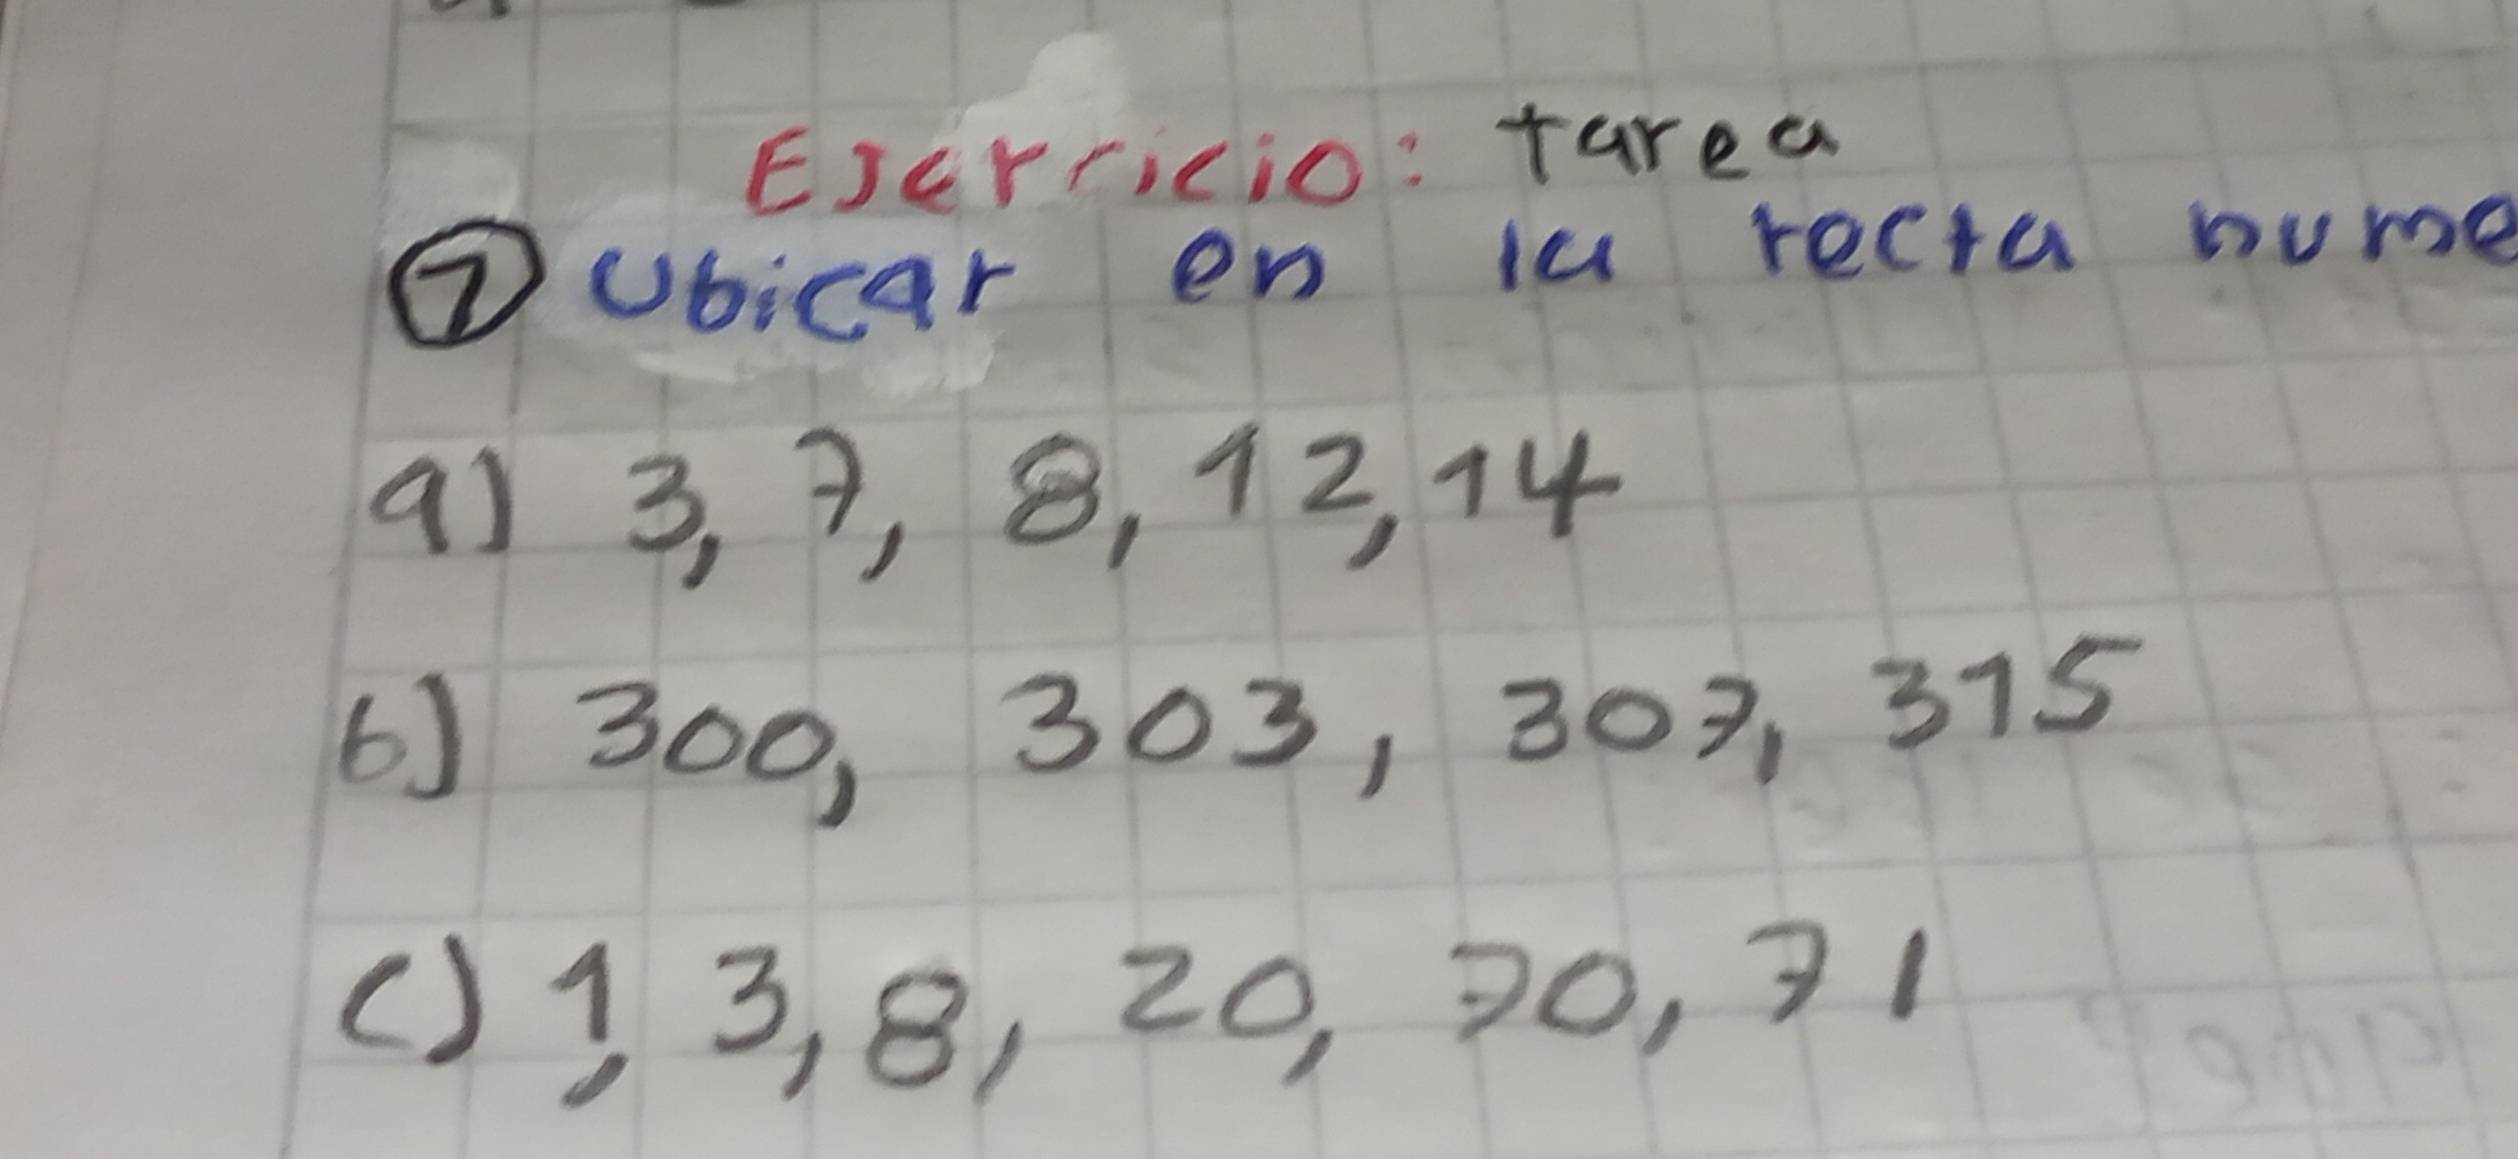 Ejercicio: tarea
⑦ Ubicar en la recta nume
a) 3, 7, 8, 12, 14
b) 300, 303, 307, 315
c) 1, 3, 8, 20, 70, 71